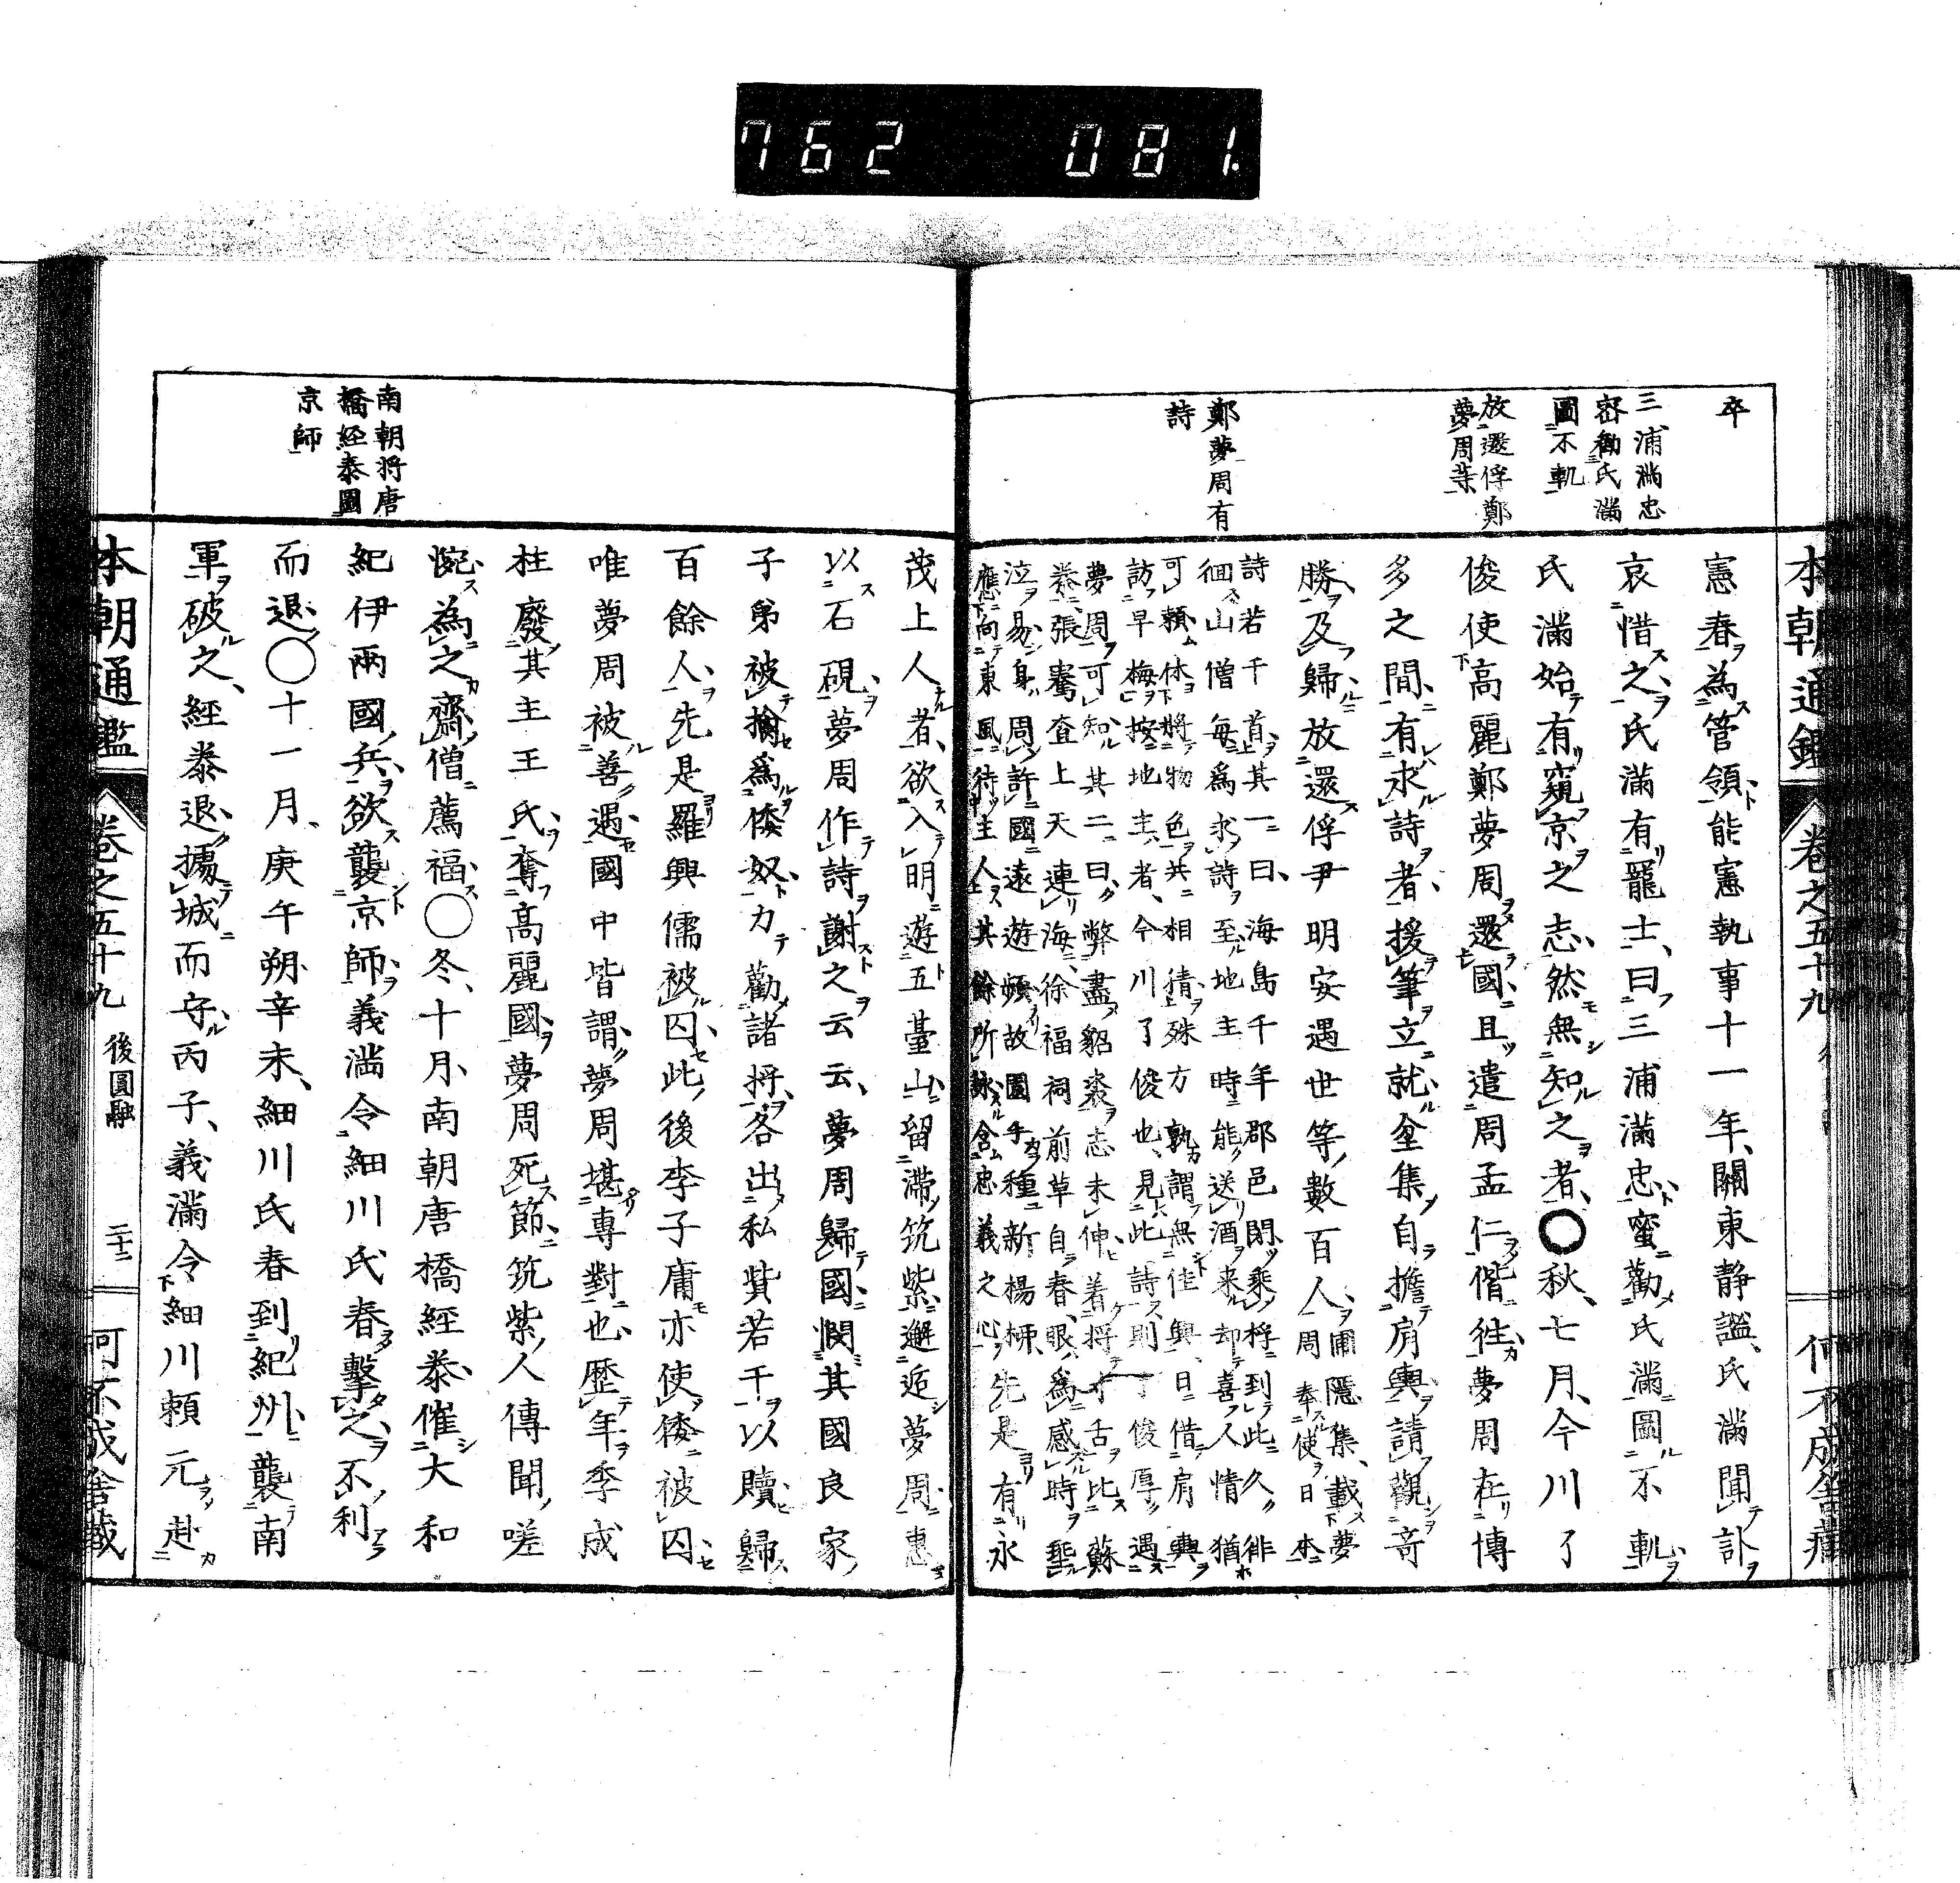 762 081.
本朝通鑑 卷之五十九
卒
三浦滿忠
密勸氏滿
圖不軌
放還俘鄭
夢周等
鄭夢周有
詩
憲春為管領能憲執事十一年關東靜謐氏滿聞訃
哀惜之氏滿有龍士曰三浦滿忠蜜勸氏滿圖不軌
氏滿始有窺京之志然無知之者○秋七月今川了
俊使高麗鄭夢周還國且遣周孟仁偕徃夢周在博
多之間有求詩者援筆立就坌集自擔肩輿請觀奇
勝及歸放還俘尹明安遇世等數百人甫隱集載夢
周奉使日本
詩若千首其一曰海島千年郡邑開乘桴到此久徘
徊山僧每為求詩至地主時能送酒来却喜人情猶
可頼休將物色共相猜殊方孰謂無佳興日借肩輿
訪早梅按地主者今川了俊也見此詩則了俊厚遇
夢周可知其二曰弊盡貂裘志未伸羞將寸舌比蘇
泰張騫查上天連海徐福祠前草自春眼為感時垂
泣易身周許國遠遊頻故園手種新楊柳
應向東風待主人其餘所詠含忠義之心先是有永
茂上人者欲入明遊五臺山留滯筑紫邂逅夢周惠
以石硯夢周作詩謝之云云夢周歸國閔其國良家
子弟被擒為倭奴力勸諸將各出私貲若千以贖歸
百餘人先是羅興儒被囚此後李子庸亦使倭被囚
唯夢周被善遇國中皆謂夢周堪專對也歷年季成
柱廢其主王氏奪高麗國夢周死節筑紫人傳聞嗟
惋為之齋僧薦福○冬十月南朝唐橋経泰催大和
紀伊兩國兵欲襲京師義滿令細川氏春擊之不利
而退○十一月庚午朔辛未細川氏春到紀州襲南
軍破之経泰退據城而守丙子義滿令細川賴元赴
南朝将唐
橋経泰圖
京師
本朝通鑑 卷之五十九 後圓融 二十二